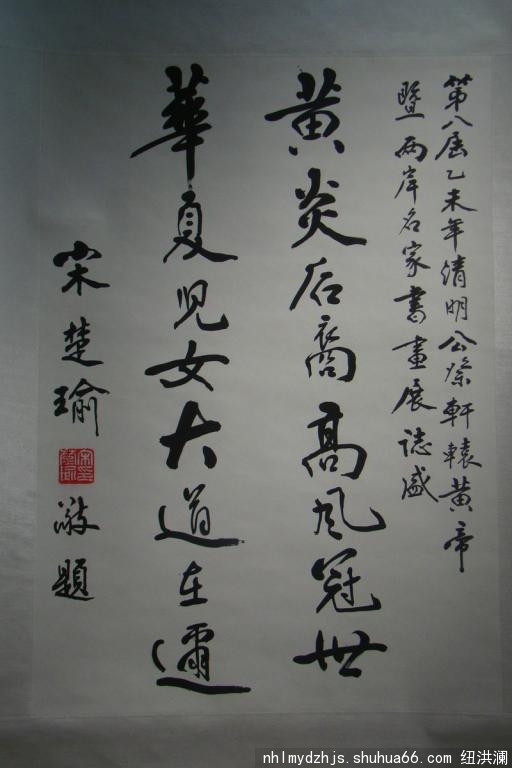 第八屆乙未年清明公祭軒轅黃帝
暨兩岸名家書畫展誌盛
黃炎后裔高风冠世
華夏児女大道在邇
宋楚瑜
敬題
nhlmydzhjs.shuhua66.com 纽洪澜